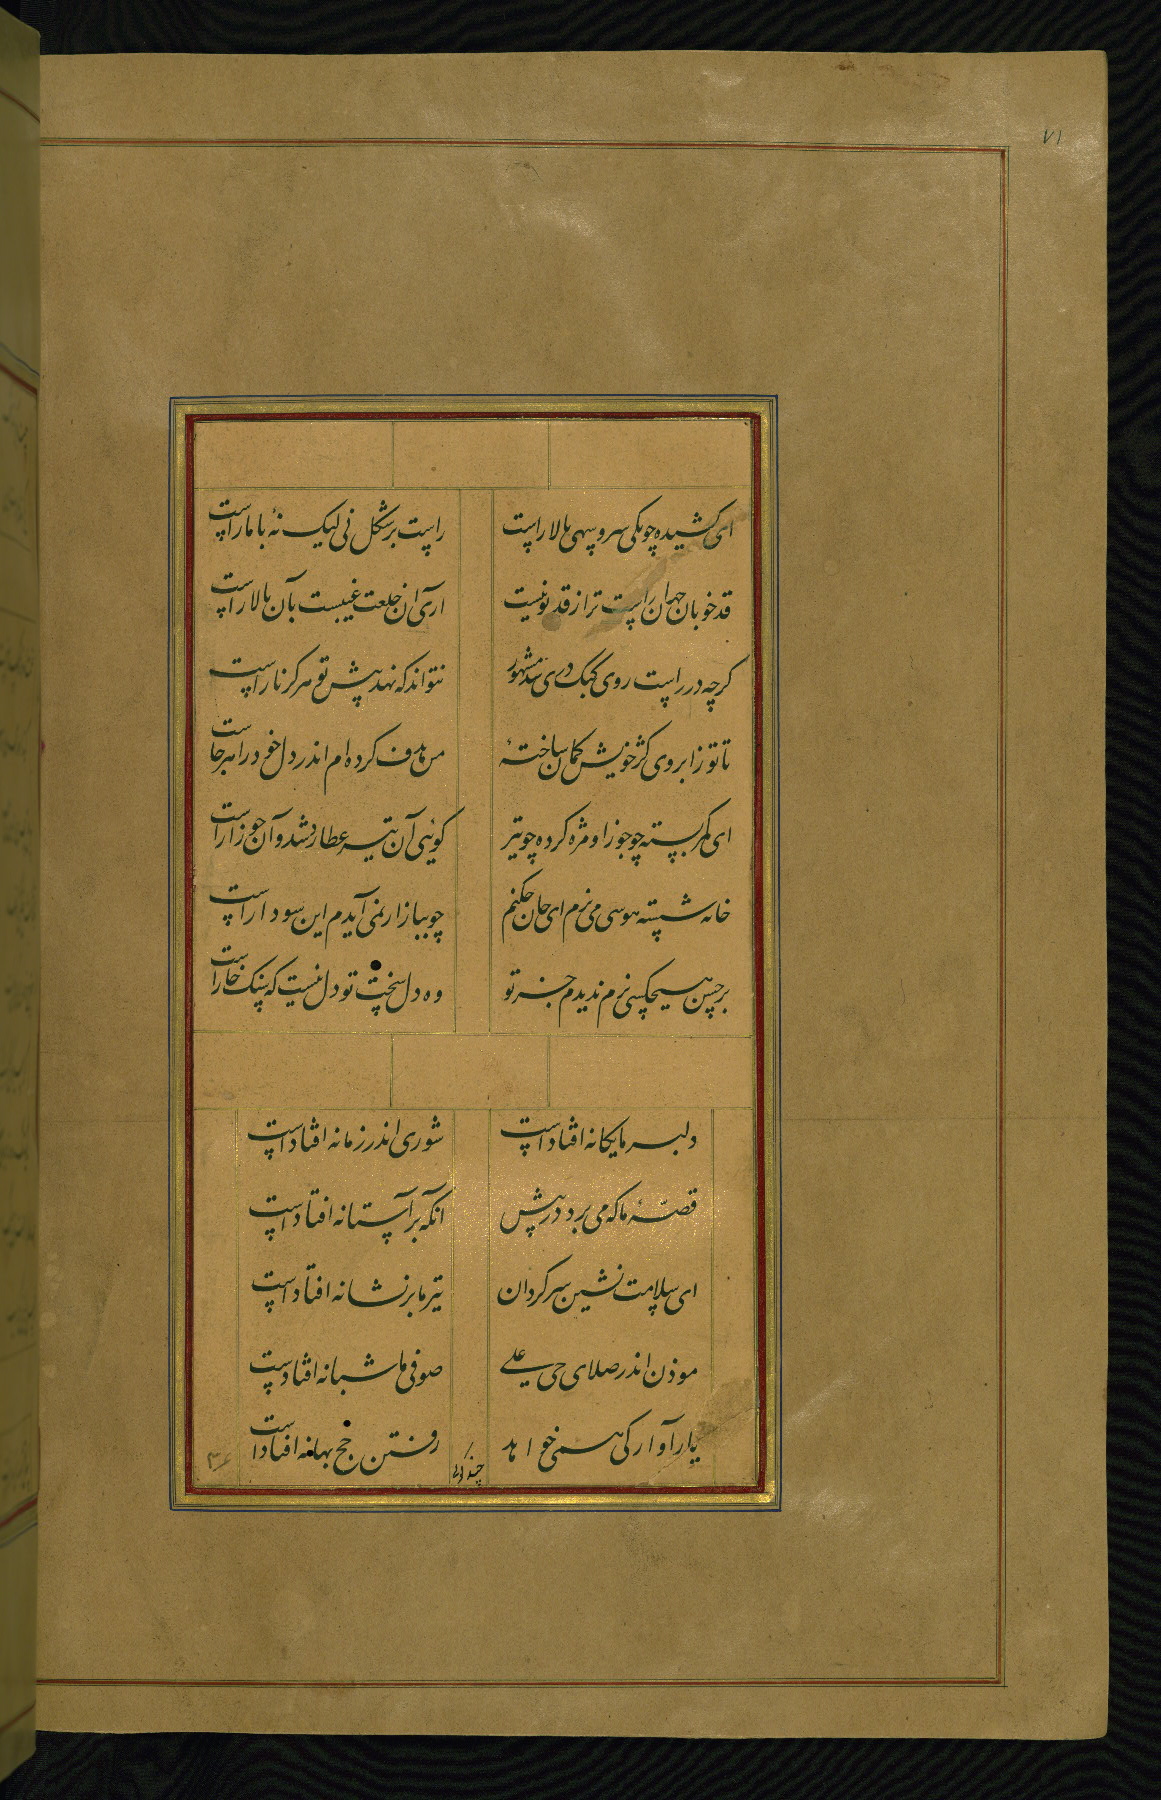 ۷۱
ای کشیده چو یکی سرو سهی بالا راست راست بر شکل نی لیک نهٔ با ما راست
قد خوبان جهان راست تر از قد تو نیست اری آن خلعت غیبست بآن بالا راست
کرچه در راست روی کبک دری شد مشهور نتواند که نهد پیش تو هرکز نا راست
تا تو ز ابروی کژ خویش کمان ساختهٔ من هدف کرده ام اندر دل خود را هر جاست
ای کمر بسته چو جوزا و مژه کرده چو تیر کوئی آن تیر عطارد شد و آن جوزا راست
خانه شسته هوسی می نرم ای جان چکنم چو ببازار نمی آیدم این سودا راست
بر حسن هیچکسی نرم ندیدم جز تو وه دل سخت تو دل نیست که سنک خاراست
دلبر ما یکانه افتاد است شوری اندر زمانه افتاد است
قصهٔ ما که می برد در پیش انکه بر آستانه افتاد است
ای سلامت نشین سر کردان تیر ما بر نشانه افتاد است
موذن اندر صلای حی علی صوفی ما شبانه افتاد است
یار آوارکی همی خواهد رفتن حج بهانه افتاد است